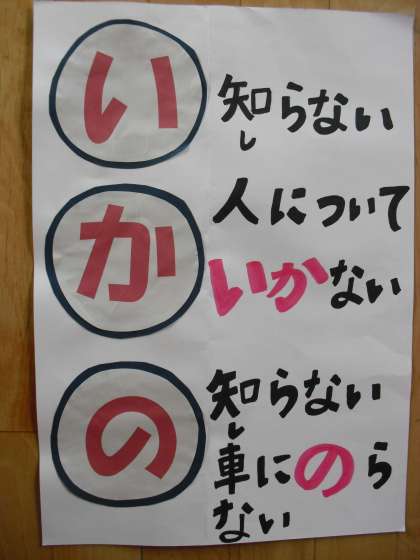 い
知らない
し
人について
か
いかない
の
知らない
し
車にのら
ない